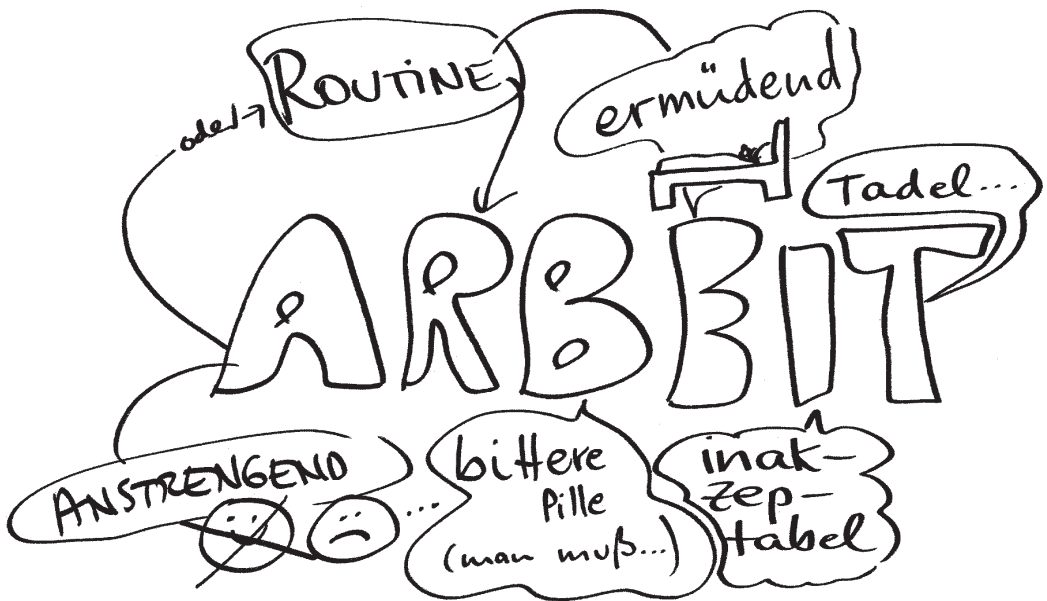 ROUTINE
ermüdend
oder→
Tadel....
ARBEIT
ANSTRENGEND
...
bittere
Pille
(man muß...)
inak-
zep-
tabel